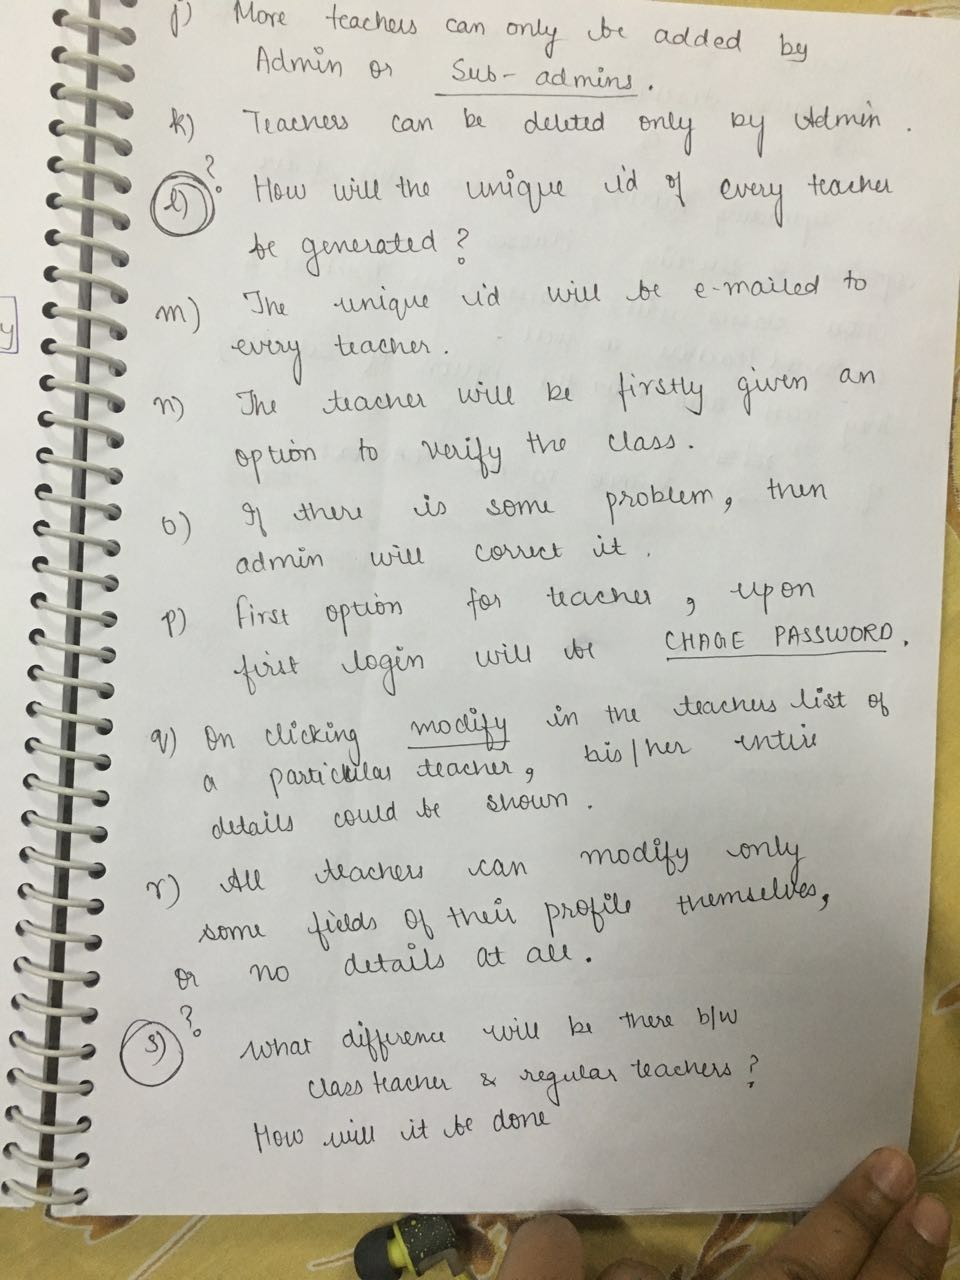 j) More teachers can only be added by
Admin or Sub-admins.
k) Teachers can be deleted only by Admin.
l) ? How will the unique id of every teacher
be generated?
m) The unique id will be e-mailed to
every teacher.
n) The teacher will be firstly given an
option to verify the class.
o) If there is some problem, then
admin will correct it.
p) First option for teacher, upon
first login will be CHAGE PASSWORD.
q) On clicking modify in the teachers list of
a particular teacher, his/her entire
details could be shown.
r) All teachers can modify only
some fields of their profile themselves,
or no details at all.
s) ? What difference will be there b/w
class teacher & regular teachers?
How will it be done
y